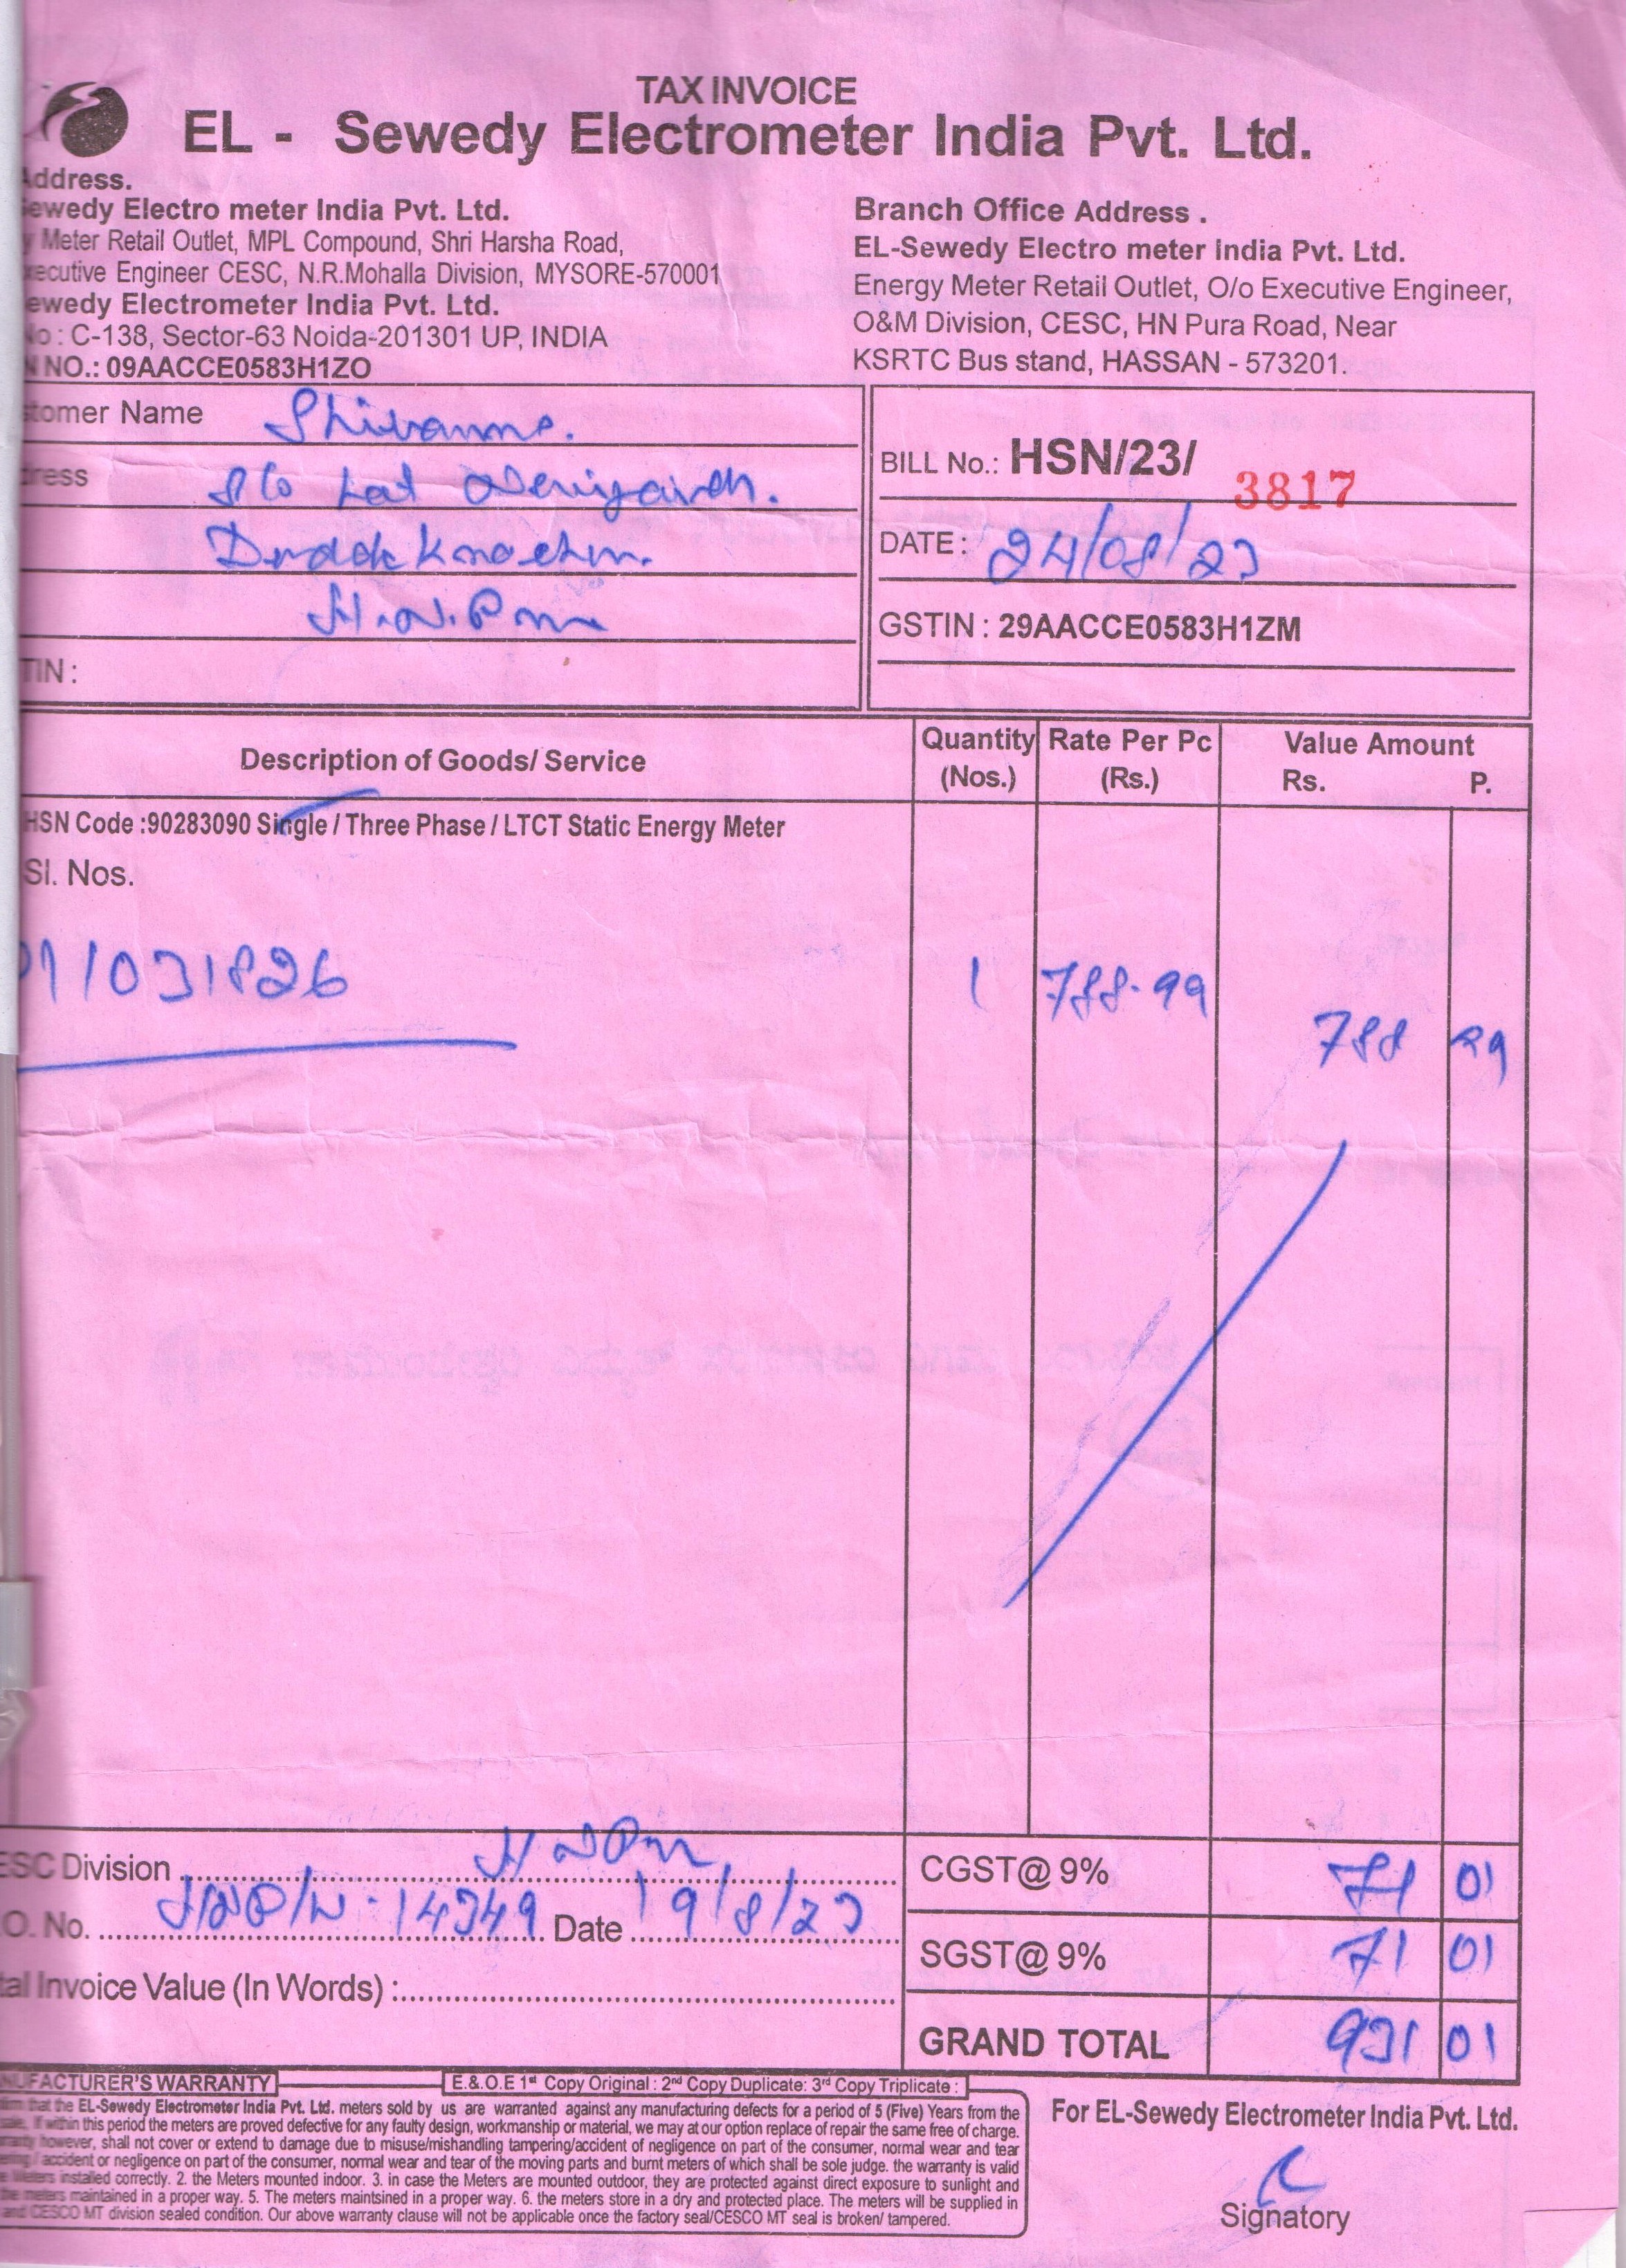 TAX INVOICE
EL - Sewedy Electrometer India Pvt. Ltd.
Address.
Sewedy Electro meter India Pvt. Ltd.
Meter Retail Outlet, MPL Compound, Shri Harsha Road,
Executive Engineer CESC, N.R.Mohalla Division, MYSORE-570001
Sewedy Electrometer India Pvt. Ltd.
No : C-138, Sector-63 Noida-201301 UP, INDIA
N NO.: 09AACCE0583H1ZO
Branch Office Address .
EL-Sewedy Electro meter India Pvt. Ltd.
Energy Meter Retail Outlet, O/o Executive Engineer,
O&M Division, CESC, HN Pura Road, Near
KSRTC Bus stand, HASSAN - 573201.
stomer Name Shivanna.
ress S/o Lat
H.N.Pura
TIN :
BILL No.: HSN/23/ 3817
DATE : 24/08/23
GSTIN : 29AACCE0583H1ZM
Description of Goods/ Service
Quantity (Nos.)
Rate Per Pc (Rs.)
Value Amount
Rs. P.
HSN Code :90283090 Single / Three Phase / LTCT Static Energy Meter
Sl. Nos.
11031826 1 788.99 788 99
ESC Division HNPura
O. No. HNP/W-14349 Date 19/8/23
tal Invoice Value (In Words) :
CGST@ 9% 71 01
SGST@ 9% 71 01
GRAND TOTAL 931 01
NUFACTURER'S WARRANTY
E.& O.E 1st Copy Original : 2nd Copy Duplicate: 3rd Copy Triplicate :
that the EL-Sewedy Electrometer India Pvt. Ltd. meters sold by us are warranted against any manufacturing defects for a period of 5 (Five) Years from the
sale. If within this period the meters are proved defective for any faulty design, workmanship or material, we may at our option replace of repair the same free of charge.
however, shall not cover or extend to damage due to misuse/mishandling tampering/accident of negligence on part of the consumer, normal wear and tear
/ accident or negligence on part of the consumer, normal wear and tear of the moving parts and burnt meters of which shall be sole judge. the warranty is valid
Meters installed correctly. 2. the Meters mounted indoor. 3. in case the Meters are mounted outdoor, they are protected against direct exposure to sunlight and
the meters maintained in a proper way. 5. The meters maintsined in a proper way. 6. the meters store in a dry and protected place. The meters will be supplied in
and CESCO MT division sealed condition. Our above warranty clause will not be applicable once the factory seal/CESCO MT seal is broken/ tampered.
For EL-Sewedy Electrometer India Pvt. Ltd.
Signatory